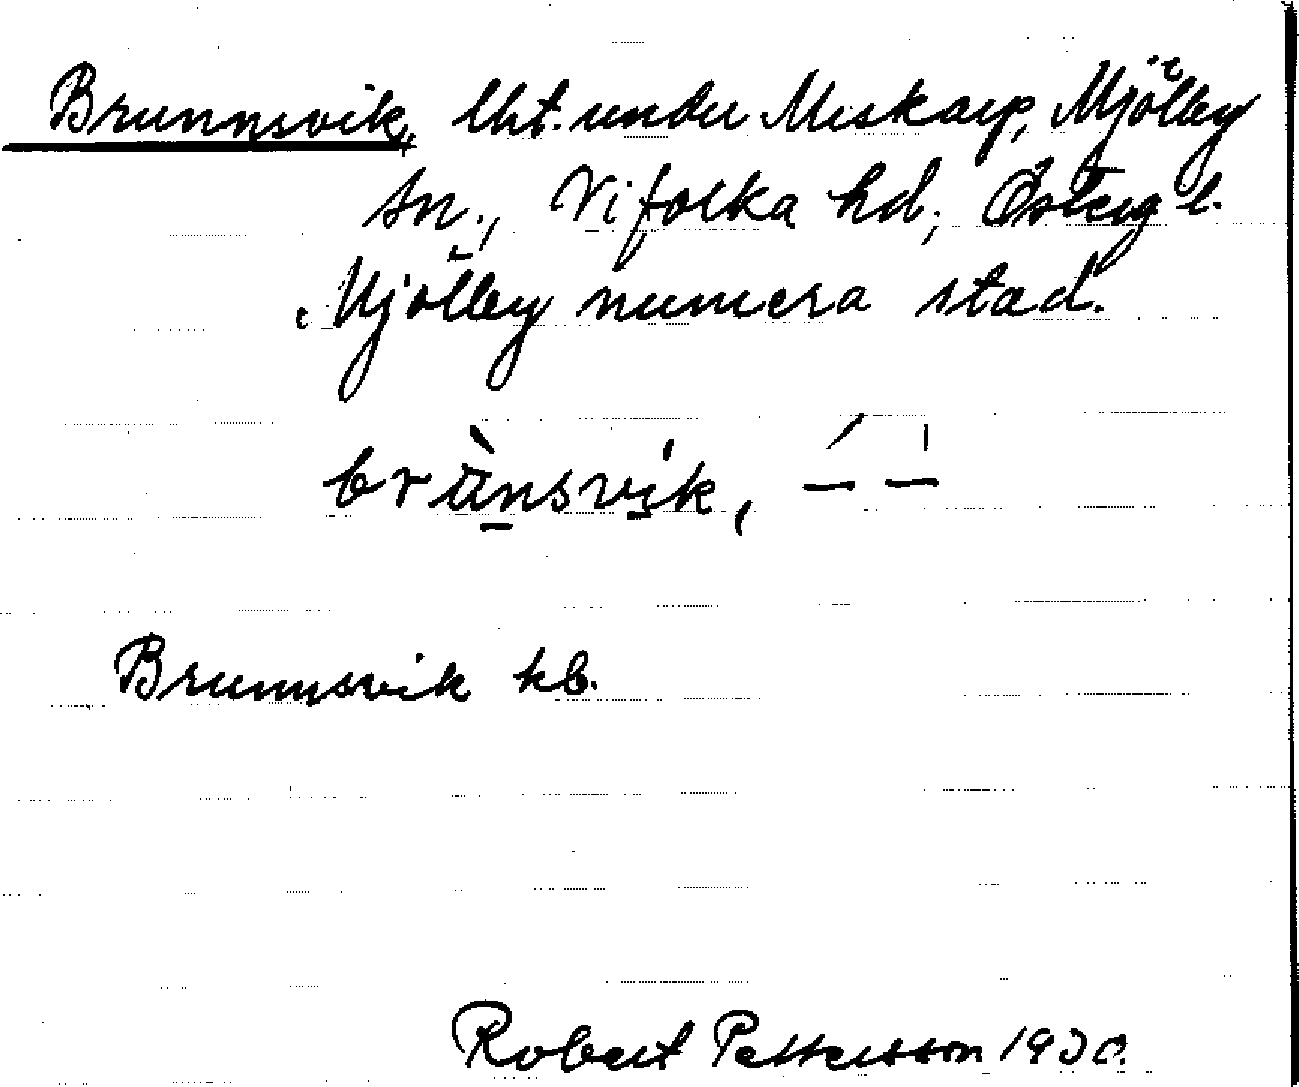 Brunnsvik, lht. under Miskarp, Mjölby
sn., Vifolka hd, Österg l.
Mjölby numera stad.
brùnsvík, – –
Brunnsvik kb.
Robert Pettersson 1930.